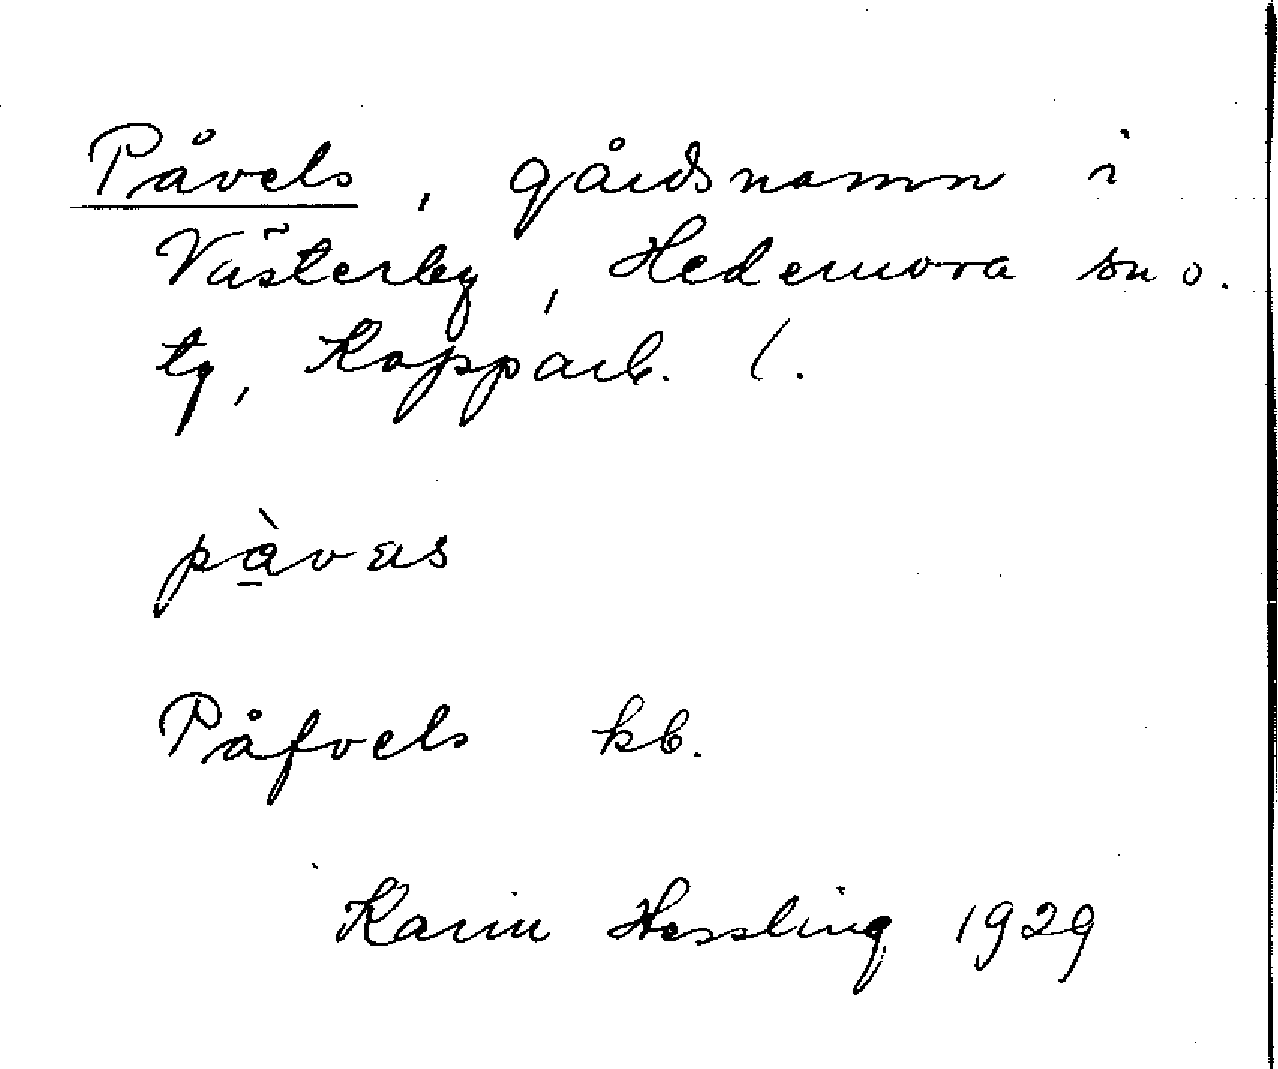 Påvels, gårdsnamn i
Västerby, Hedemora sn o.
tg, Kopparb. l.
pàvas
Påfvels kb.
Karin Hessling 1929